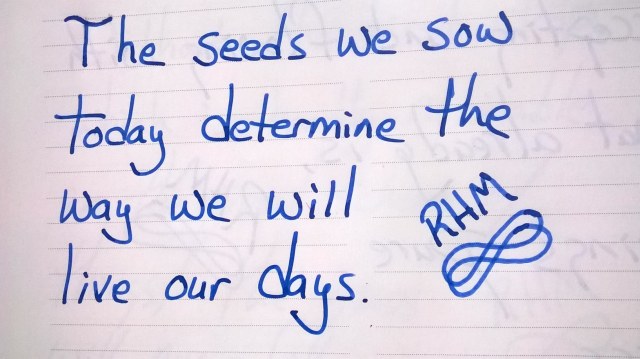 The seeds we sow
today determine the
way we will
live our days.
RHM